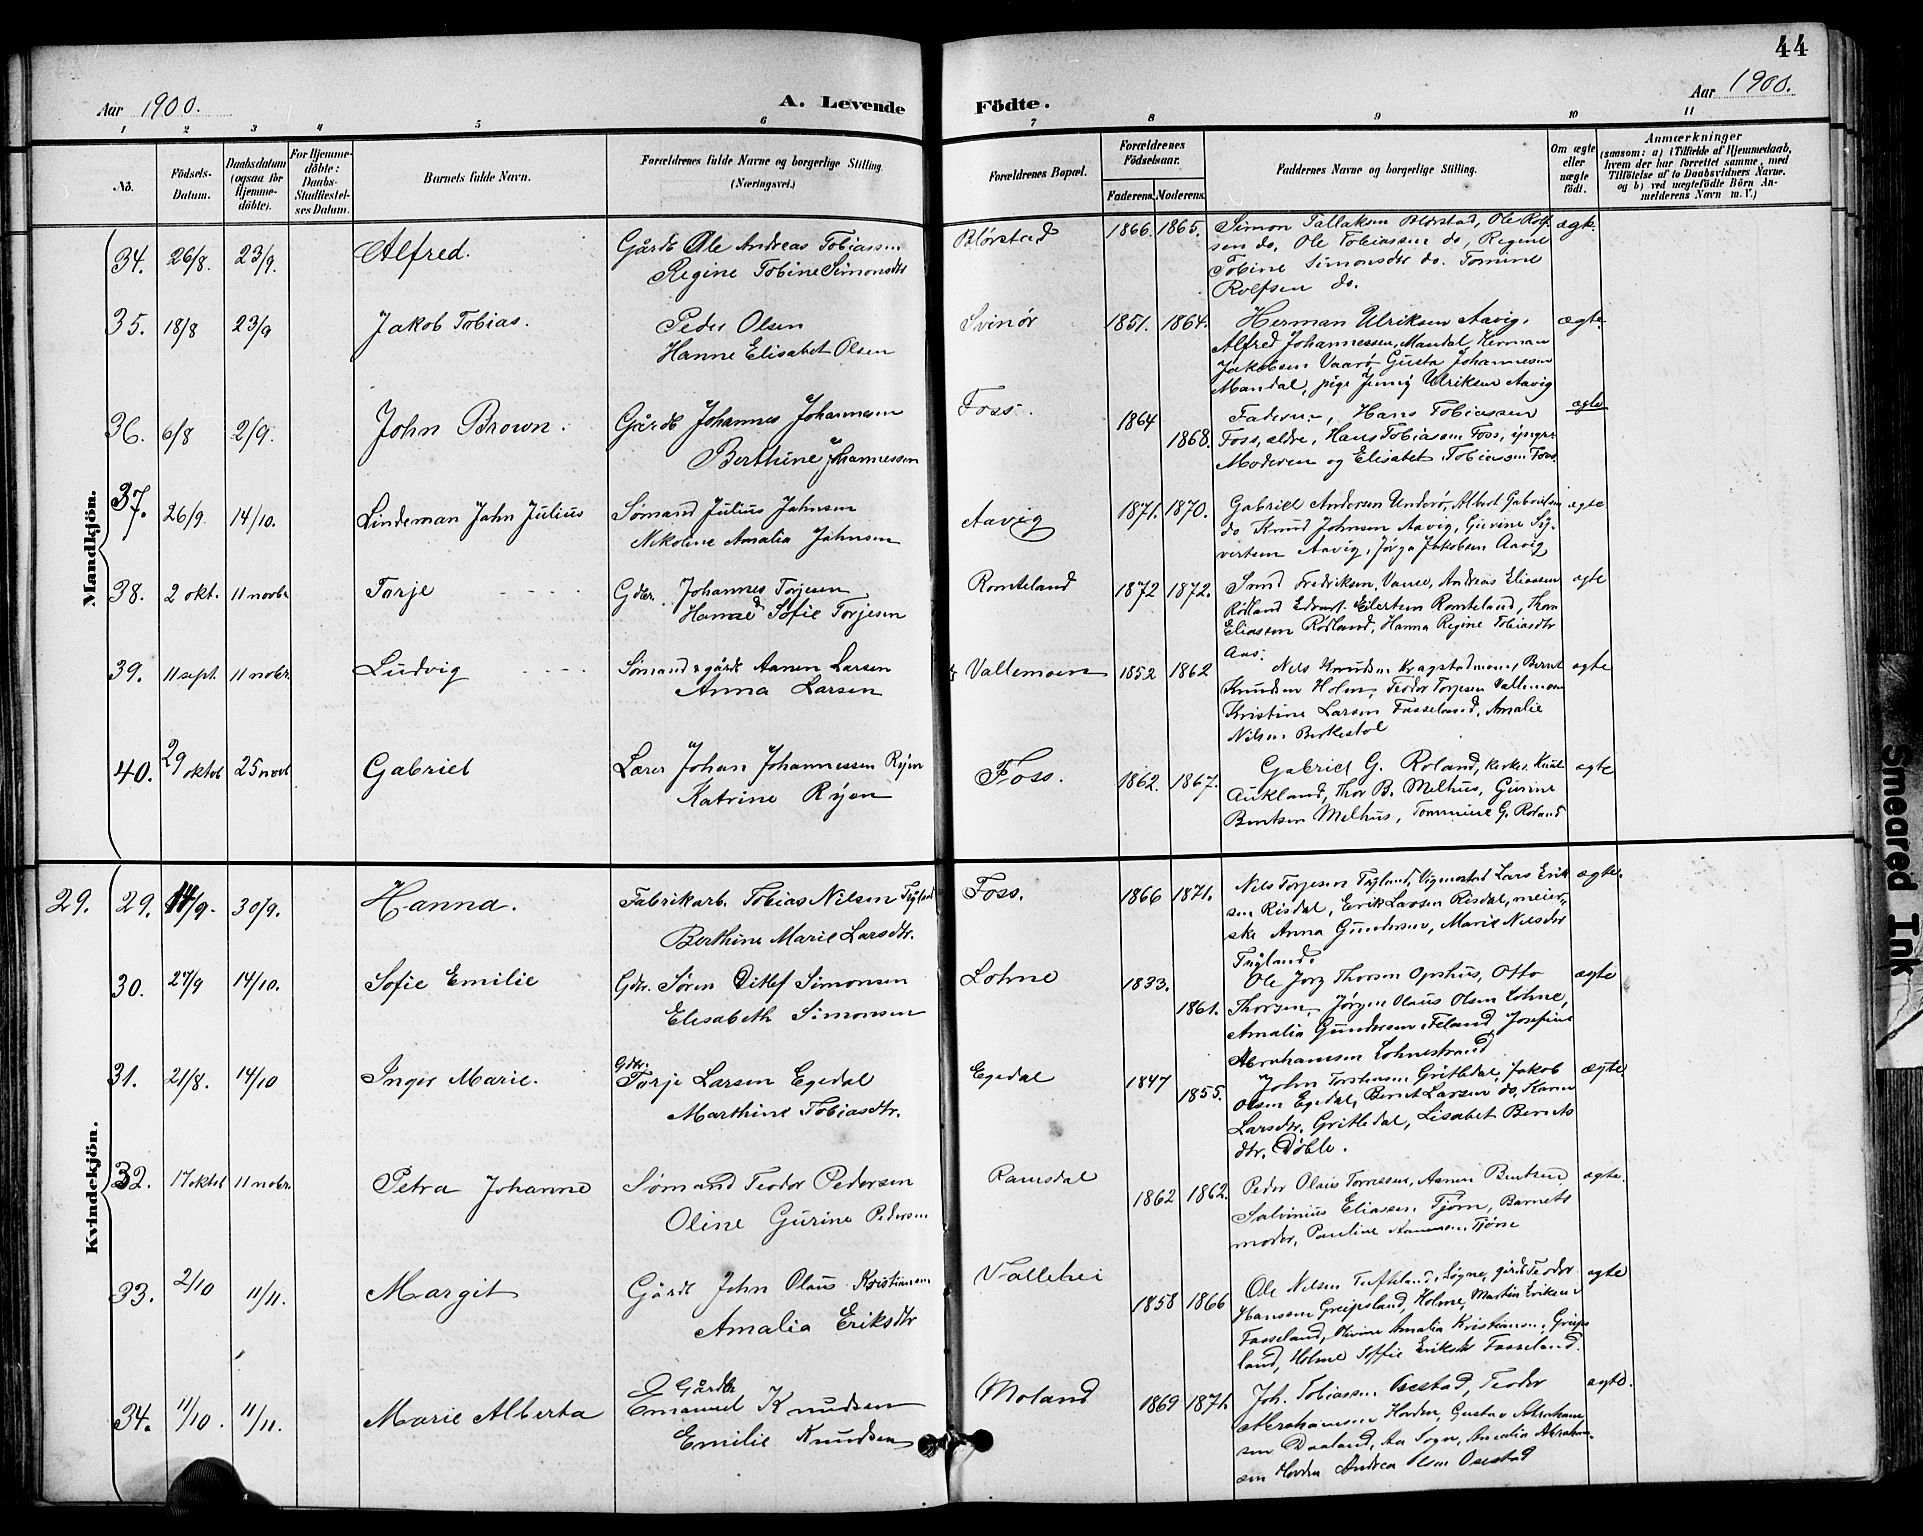 44
Aar 1900.
A. Levende
Födte.
Aar 1900.
1 2 3 4 5 6 7 8 9 10 11
No.
Födsels-
Datum.
Daabsdatum
(ogsaa for
Hjemme-
döbte).
For Hjemme-
döbte:
Daabs-
Stadfæstel-
ses Datum.
Barnets fulde Navn.
Forældrenes fulde Navne og borgerlige Stilling.
(Næringsvei.)
Forældrenes Bopæl.
Forældrenes
Födselsaar.
Faderens. Moderens.
Faddernes Navne og borgerlige Stilling.
Om ægte
eller
uægte
födt.
Anmærkninger
(saasom: a) i Tilfælde af Hjemmedaab,
hvem der har forrettet samme, med
Tilföielse af to Daabsvidners Navne.
og b) ved uægtefödte Börn An-
melderens Navn m. V.)
Mandkjön.
34. 26/8. 23/9. Alfred. Gårdb Ole Andreas Tobiassen
Regine Tobine Simonsdtr
Blørstad 1866. 1865. Simon Tallaksen Blørstad, Ole Rolf- ægte.
sen do, Ole Tobiassen do, Regine
Tobine Simonsdtr do. Tomine
Rolfsen do.
35. 18/8 23/9 Jakob Tobias. Peder Olsen
Hanne Elisabet Olsen
Svinør 1851. 1864. Herman Ulriksen Aavig, ægte.
Alfred Johannessen, Mandal, Herman
Jakobsen Vaarø, Gusta Johannesen
Mandal, pige Jenny Ulriksen Aavig
36. 6/8 2/9. John Brown. Gårdb Johannes Johannesen
Berthine Johannessen
Foss. 1864 1868. Faderen, Hans Tobiassen ægte
Foss, ældre, Hans Tobiassen Foss, yngre
Moderen og Elisabet Tobiassen Foss.
37. 26/9. 14/10. Lindeman John Julius Sømand Julius Johnsen
Nikoline Amalia Johnsen
Aavig 1871. 1870. Gabriel Andersen Underø, Albert Gabrielsen ægte
do Knud Johnsen Aavig, Gurine Sy-
vertsen Aavig, Jørga Jakobsen Aavig
38. 2 okt. 11 novbr Torje Gdbr. Johannes Torjesen
Hanna Sofie Torjesen
Romteland 1872 1872. Fredriksen, Vanse, Andreas Eliassen ægte
Rødland Edvart Eilertsen Romteland, Thom
Eliassen Rødland, Hanna Regine Tobiasdtr
Aas.
39. 11 sept 11 nobr. Ludvig Sømand & gårdb Aanen Larsen
Anna Larsen
Vallemoen 1852 1862 Nels Knudsen Kragstadmoen, Bernt ægte
Knudsen Holm, Teodor Torjesen Vallemoen
Kristine Larsen Fasseland, Amalie
Nilsen Birkestøl
40. 29 oktob 25 novb Gabriel Lærer Johan Johannessen Ryen
Katrine Ryen
Foss. 1862. 1867. Gabriel G. Roland, kirkes. Knut ægte
Aukland, Thor B. Melhus, Gurine
Berntsen Melhus, Tommine G. Roland
Kvindekjön.
29. 29. 11/9. 30/9. Hanna. Fabrikarb. Tobias Nilsen Tryland
Berthine Marie Larsdtr.
Foss. 1866 1871. Nils Torjesen Tryland, Vigmostad Lars Erik ægte.
sen Risdal, Erik Larsen Risdal, meier-
ske Anna Gundersen, Marie Nilsdtr
Tryland.
30. 27/9 14/10. Sofie Emilie Gdbr. Søren Ditlef Simonsen
Elisabeth Simonsen
Lohne 1833. 1861. Ole Jorg Thorsen Opshus, Otto ægte
Thorsen, Jørgen Olaus Olsen Lohne,
Amalia Gundersen Feland, Josefine
Abrahamsen Lohnestrand
31. 21/8. 14/10 Inger Marie. Gdbr.
Torje Larsen Egedal
Marthine Tobiasdtr.
Egedal 1847 1855. John Torstensen Gritledal, Jakob ægte.
Olsen Egedal, Bernt Larsen do, Karen
Larsdtr. Gritledal, Lisabet Bernts
dtr. Døble.
32. 17 oktob 11 nobr. Petra Johanne Sømand Teodor Pedersen
Oline Gurine Pedersen
Ramsdal 1862 1862. Peder Olaus Tomessen, Aanen Berntsen ægte.
Salvinius Eliassen Tjom, Barnets
moder, Pauline Aanensen, Tjøm
33. 2/10 11/11. Margit Gårdb John Olaus Kristiansen
Amalia Eriksdtr
Vallehei 1858 1866 Ole Nilsen Tufteland, Søgne, gårdb Teodor ægte
Hansen Greipsland, Holme, Martin Eriksen
Fasseland, Olivine Amalia Kristiansen, Greips
land, Holme Soffie Eriksdtr Fasseland.
34. 11/10. 11/11. Marie Alberta Gårdbr
Emanuel Knudsen
Emilie Knudsen
Moland 1869 1871 Joh. Tobiassen Osestad, Teodor ægte.
Abrahamsen Horden, Gustav Abraham
sen Daaland, Aa Sogn, Amalia Abraham
sen Horden Andrea Olsen Osestad
Smeared Ink